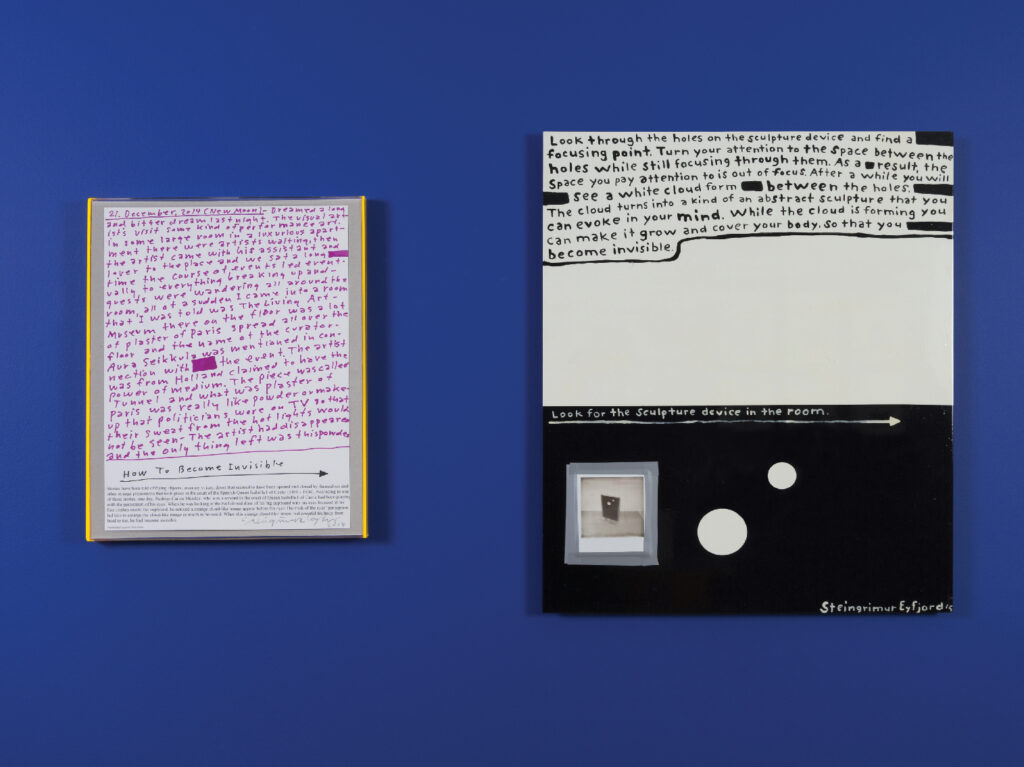 21. December, 2014 (New Moon) - Dreamed a long
and bitter dream last night. The visual art-
ists visit some kind of performance art.
In some large room in a luxurious apart-
ment there were artists waiting, then
the artist came with his assistant and
lover to the place and we sat a long
time the course of events led event-
ually to everything breaking up and -
guests were wandering all around the
room, all of a sudden I came into a room
that I was told was The Living Art -
Museum there on the floor was a lot
of plaster of Paris spread all over the
floor and the name of the curator -
Aura Seikkula was mentioned in con-
nection with the event. The artist
was from Holland claimed to have the
power of medium. The piece was called
Tunnel and what was plaster of
Paris was really like powder or make-
up that politicians wore on TV so that
their sweat from the hot lights would
not be seen - The artist had disappeared
and the only thing left was this powder
How To Become Invisible
Look through the holes on the sculpture device and find a
focusing point. Turn your attention to the space between the
holes while still focusing through them. As a result, the
Space you pay attention to is out of focus. After a while you will
see a white cloud form between the holes.
The cloud turns into a kind of an abstract sculpture that you
can evoke in your mind. While the cloud is forming you
can make it grow and cover your body. So that you
become invisible.
Look for the sculpture device in the room.
Steingrimur Eyfjord